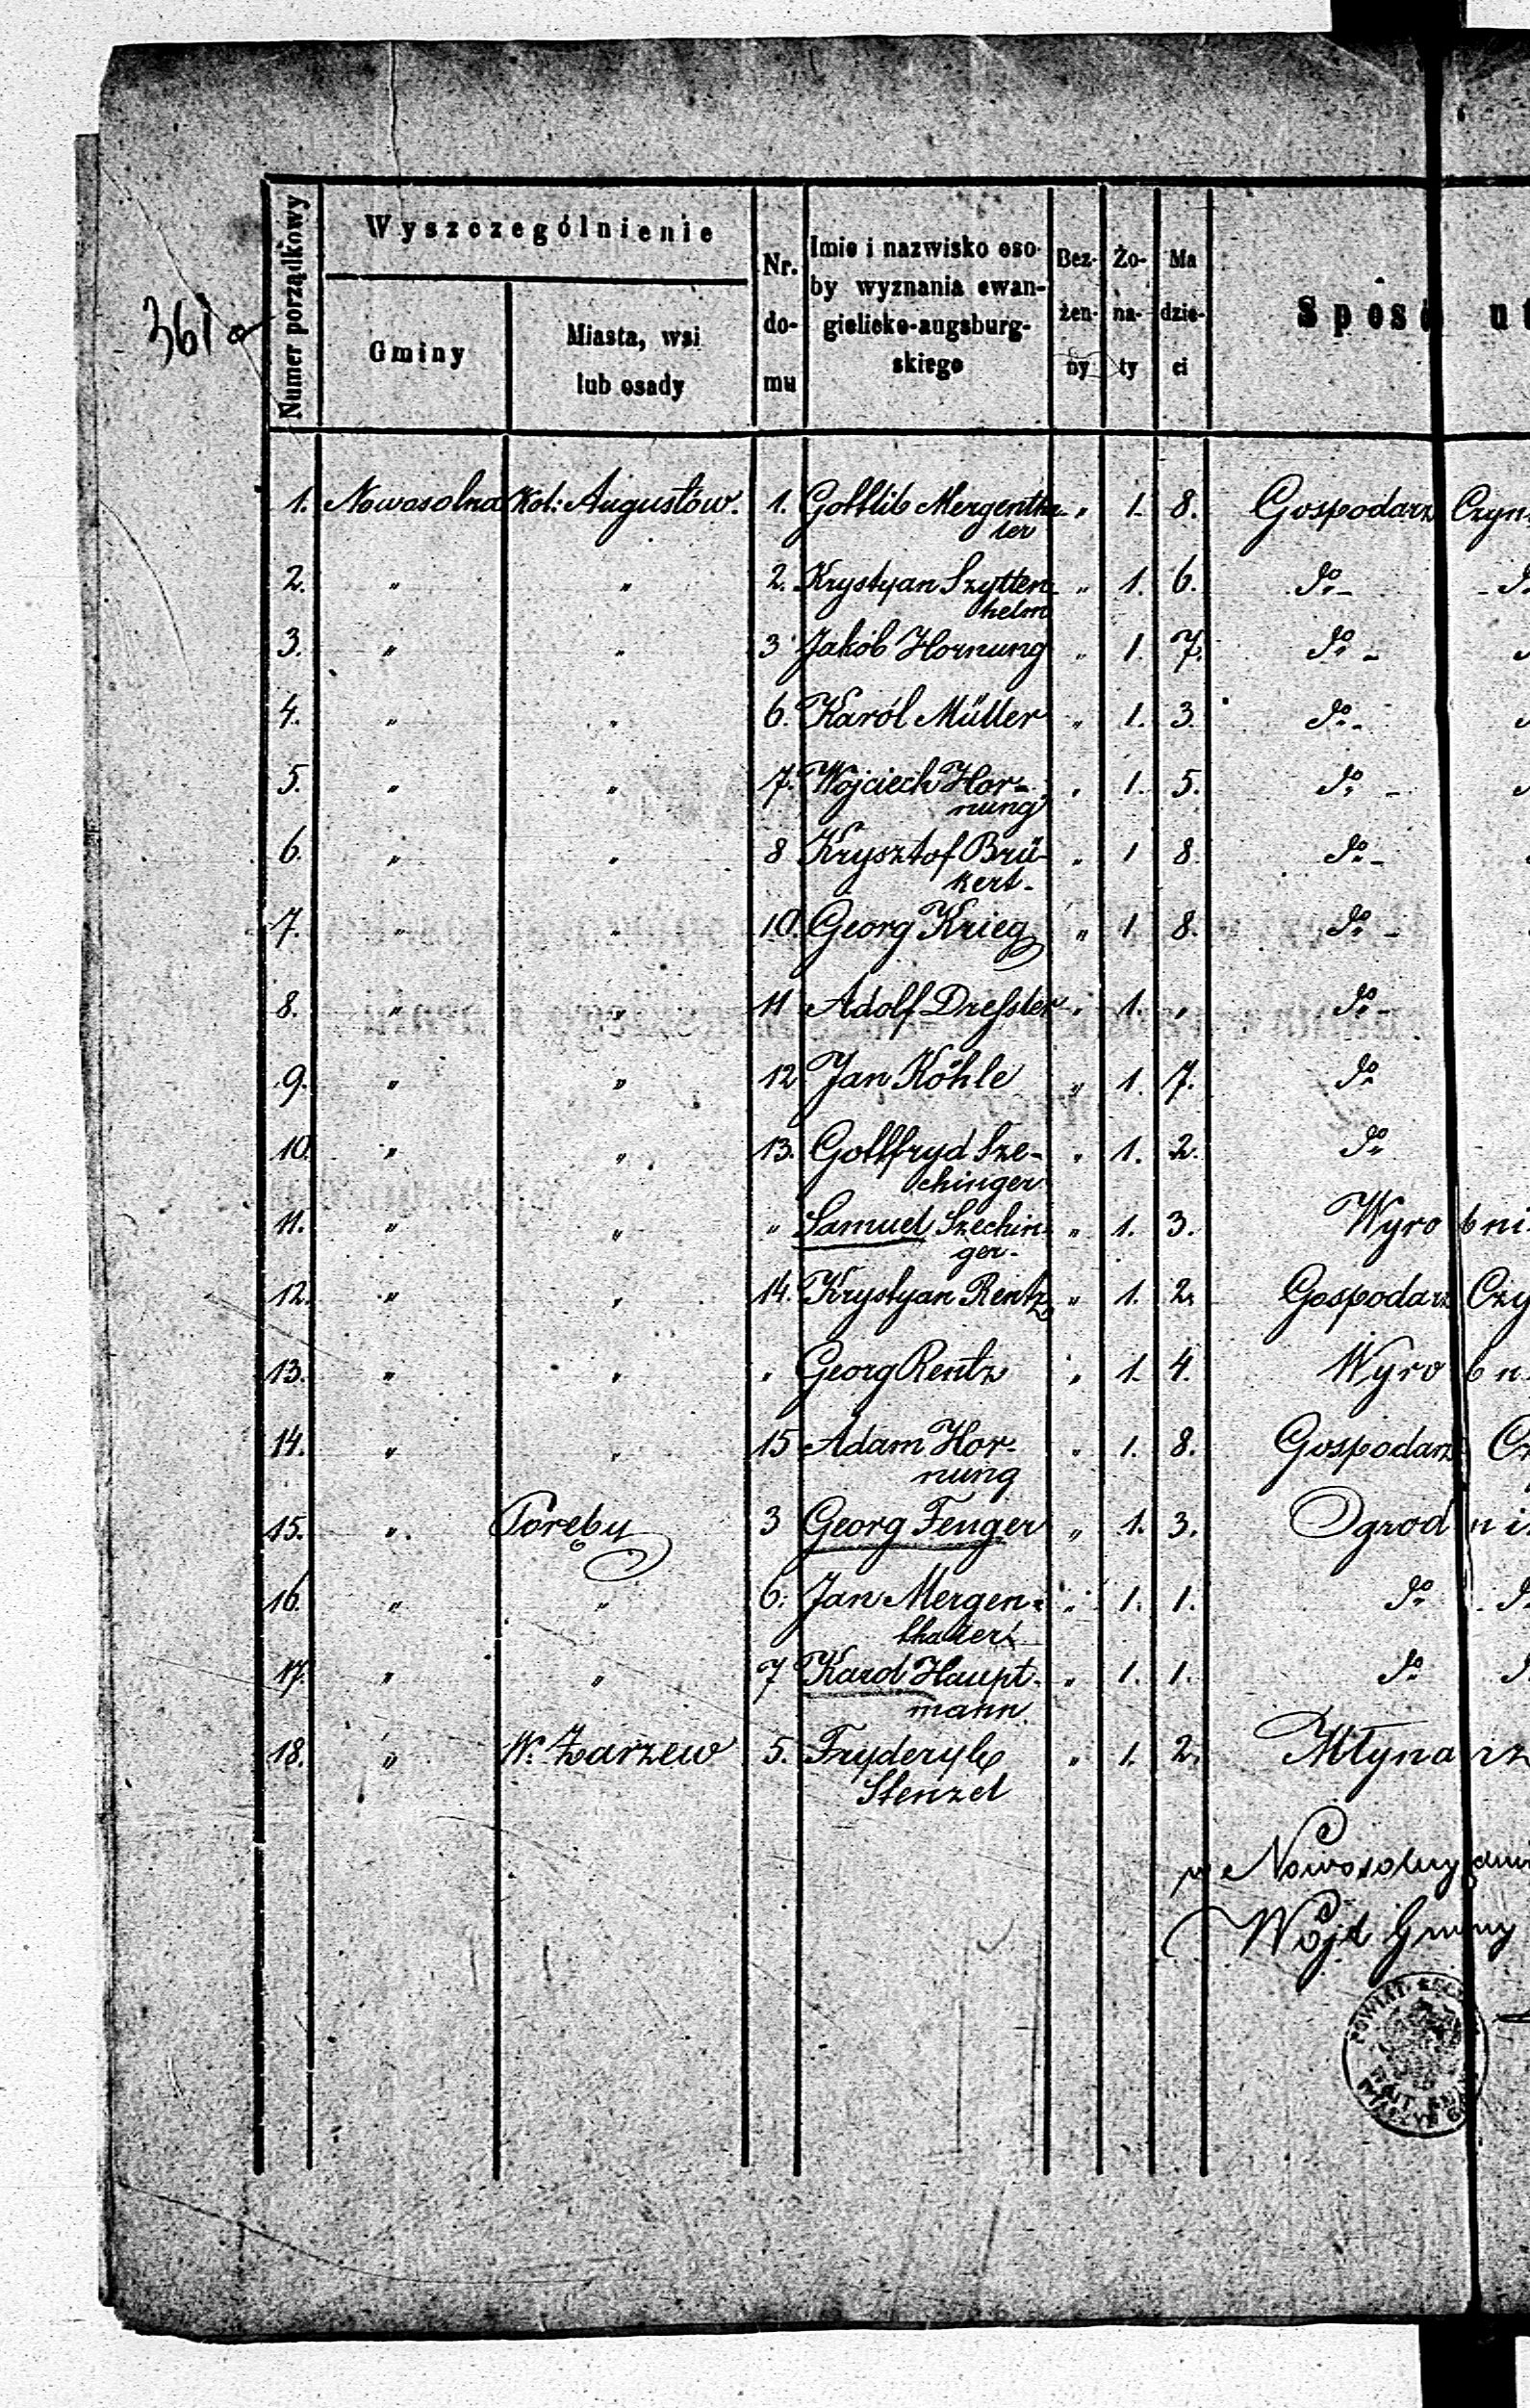 361a
Numer porządkowy
Wyszczególnienie
Gminy
Miasta, wsi
lub osady
Nr.
do-
mu
Imie i nazwisko oso-
by wyznania ewan-
gielicko-augsburg-
skiego
Bez-
żen-
ny
Żo-
na-
ty
Ma
dzie-
ci
Sposó ut
1. Nowosolna Kol: Augustów. 1. Gottlib Mergentha- „ 1. 8. Gospodarz Czyn
ler
2. „ „ 2. Krystyan Szytten- „ 1. 6. do -
helm
3. „ „ 3 Jakób Hornung „ 1. 7. do -
4. „ „ 6. Karól Müller „ 1. 3. do -
5. „ „ 7. Wojciech Hor- „ 1. 5. do -
nung
6. „ „ 8 Krysztof Brü- „ 1 8. do -
kert.
7. „ „ 10. Georg Krieg „ 1 8. do -
8. „ „ 11 Adolf Dreſsler „ 1. „ do -
9. „ „ 12 Jan Köhle „ 1. 7. do
10. „ „ 13. Gottfryd Sze- „ 1. 2. do
chinger
11. „ „ „ Samuel Szechin- „ 1. 3. Wyrobni
ger.
12. „ „ 14. Krystyan Rentz „ 1. 2. Gospodarz Czy
13. „ „ „ Georg Rentz „ 1. 4. Wyrobn
14. „ „ 15 Adam Hor- „ 1. 8. Gospodarz
nung
15. „ Poręby 3 Georg Fenger „ 1. 3. Ogrodni
16. „ „ 6. Jan Mergen- „ 1. 1. do
thaler
17. „ „ 7 Karol Haupt- „ 1. 1. do
mann
18. „ W. Zarzew 5. Fryderyk „ 1. 2. Młynarz
Stenzel
w Nowosolny dni
Wójt Gminy
POWIAT